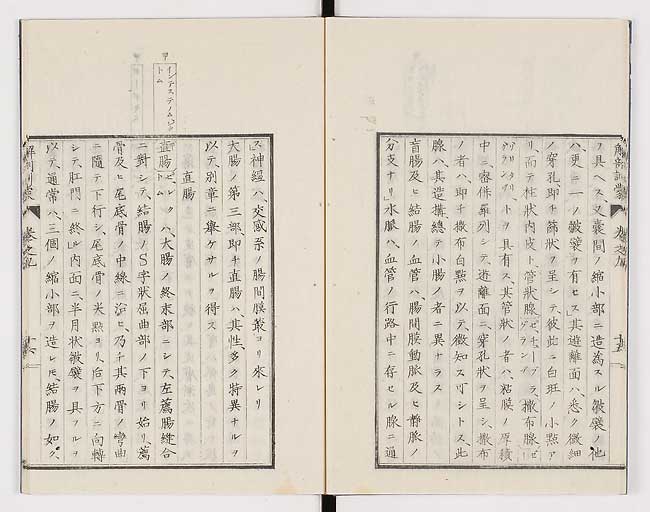 ヲ具ヘス又囊間ノ縮小部ニ造為スル皺襞ノ他
ハ更ニ一ノ皺襞ヲ有セス」其遊離面ハ悉ク微細
ノ穿孔即チ篩状ヲ呈シテ彼此ニ白班ノ小點ア
リ而テ柱狀内皮ト管狀腺
ト具有ス其管狀ノ者ハ粘膜ノ厚積
中ニ密併羅列シテ遊離面ニ穿孔狀ヲ呈シ撒布
ノ者ハ即チ撒布白點ヲ以テ徴知ス可シトス此
腺ハ其造搆總テ小腸ノ者ニ異ナラス
盲腸及ヒ結腸ノ血管ハ腸間膜動脈及ヒ静脈ノ
分支ナリ」水脈ハ血管ノ行路中ニ存セル腺ニ通
解剖訓蒙
卷之九
十五
ス神經ハ交感系ノ腸間膜叢ヨリ來レリ
大腸ノ第三部即チ直腸ハ其性多ク特異ナルヲ
以テ別章ニ擧ケサルヲ得ス
直腸
直腸 ハ大腸ノ終末部ニシテ左薦腸縫合
ニ對シテ結腸ノS字狀屈曲部ノ下ヨリ始リ薦
骨及ヒ尾底骨ノ中線ニ沿ヒ乃チ其兩骨ノ彎曲
ニ隨テ下行シ尾底骨ノ尖點ヨリ后下方ニ向轉
シテ肛門ニ終ル」内面ニ半月状皺襞ヲ具フルヲ
以テ通常ハ三個ノ縮小部ヲ造レ𪜈結腸ノ如ク
卷之九
十六